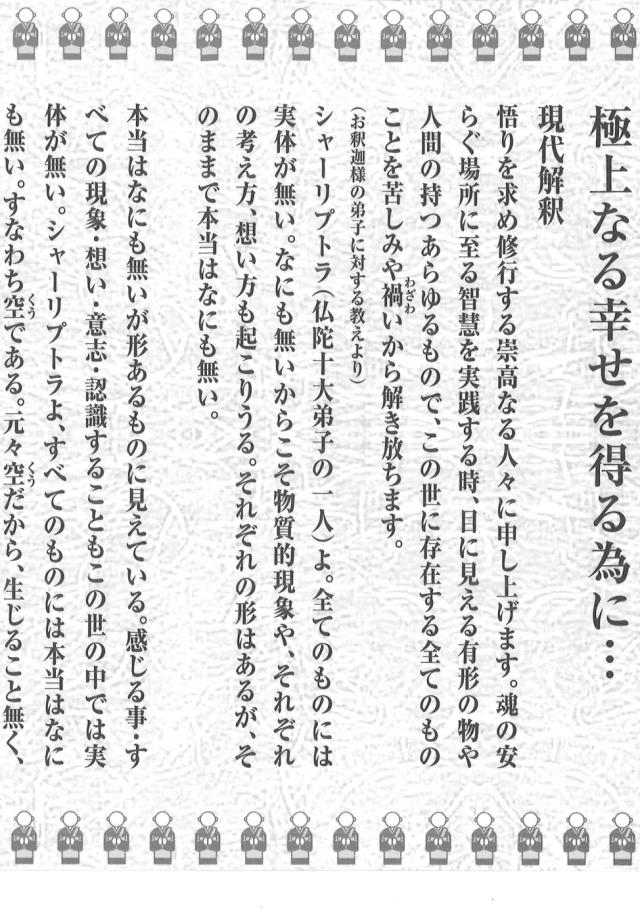 極上なる幸せを得る為に…
現代解釈
悟りを求め修行する崇高なる人々に申し上げます。魂の安
らぐ場所に至る智慧を実践する時、目に見える有形の物や
人間の持つあらゆるもので、この世に存在する全てのもの
ことを苦しみや禍いから解き放ちます。
わざわ
(お釈迦様の弟子に対する教えより)
シャーリプトラ(仏陀十大弟子の一人)よ。全てのものには
実体が無い。なにも無いからこそ物質的現象や、それぞれ
の考え方、想い方も起こりうる。それぞれの形はあるが、そ
のままで本当はなにも無い。
本当はなにも無いが形あるものに見えている。感じる事・す
べての現象・想い・意志・認識することもこの世の中では実
体が無い。シャーリプトラよ、すべてのものには本当はなに
も無い。すなわち空である。元々空だから、生じること無く、
くう
くう